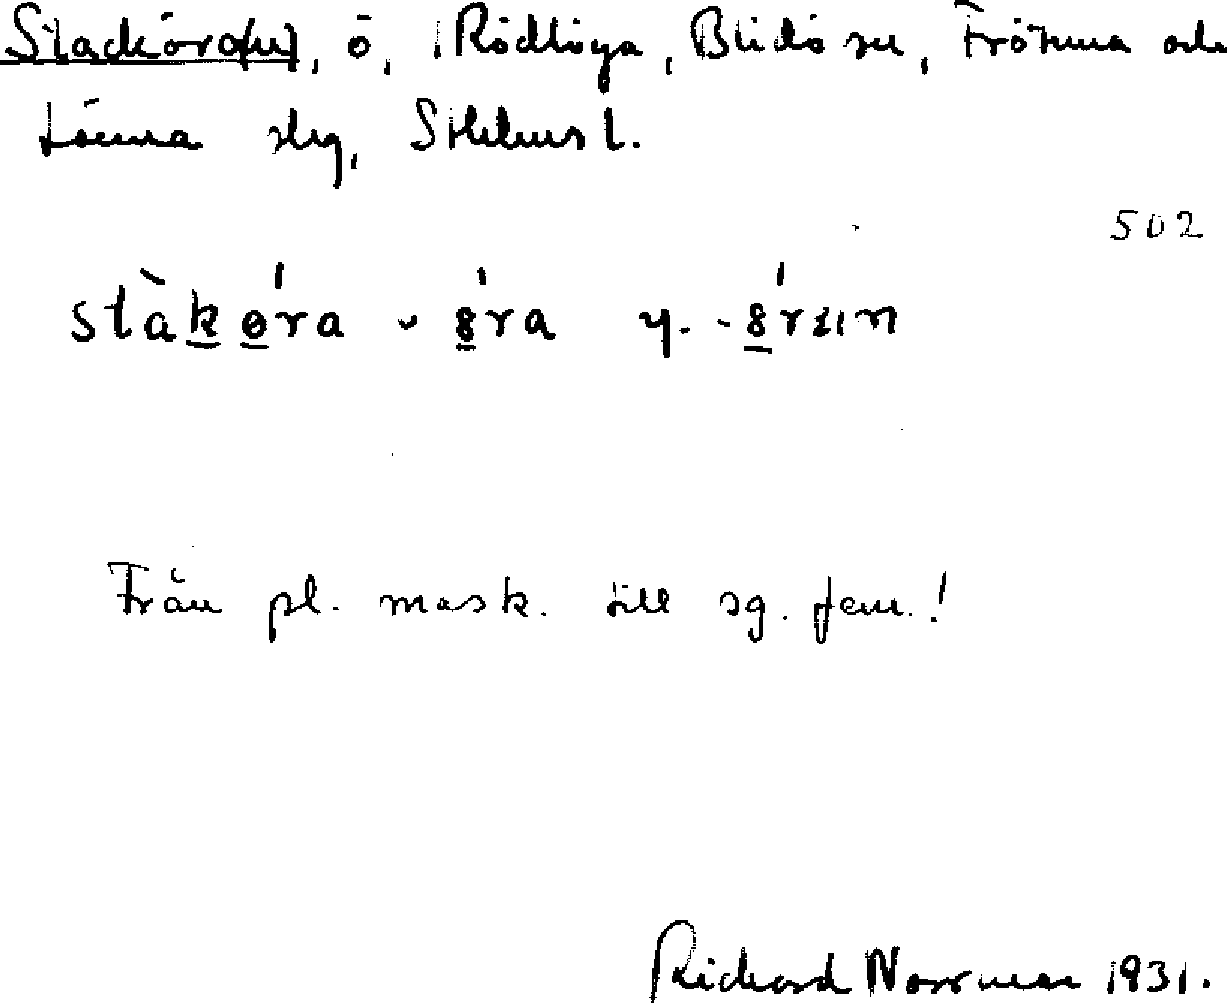 Stacköra(n), ö, Rödlöga, Blidö sn, Frötuna och
Länna skg, Sthlms l.
502
stàkǿra ~ -ǿra y. -ǿran
Från pl. mask. till sg. fem.!
Richard Norrman 1931.